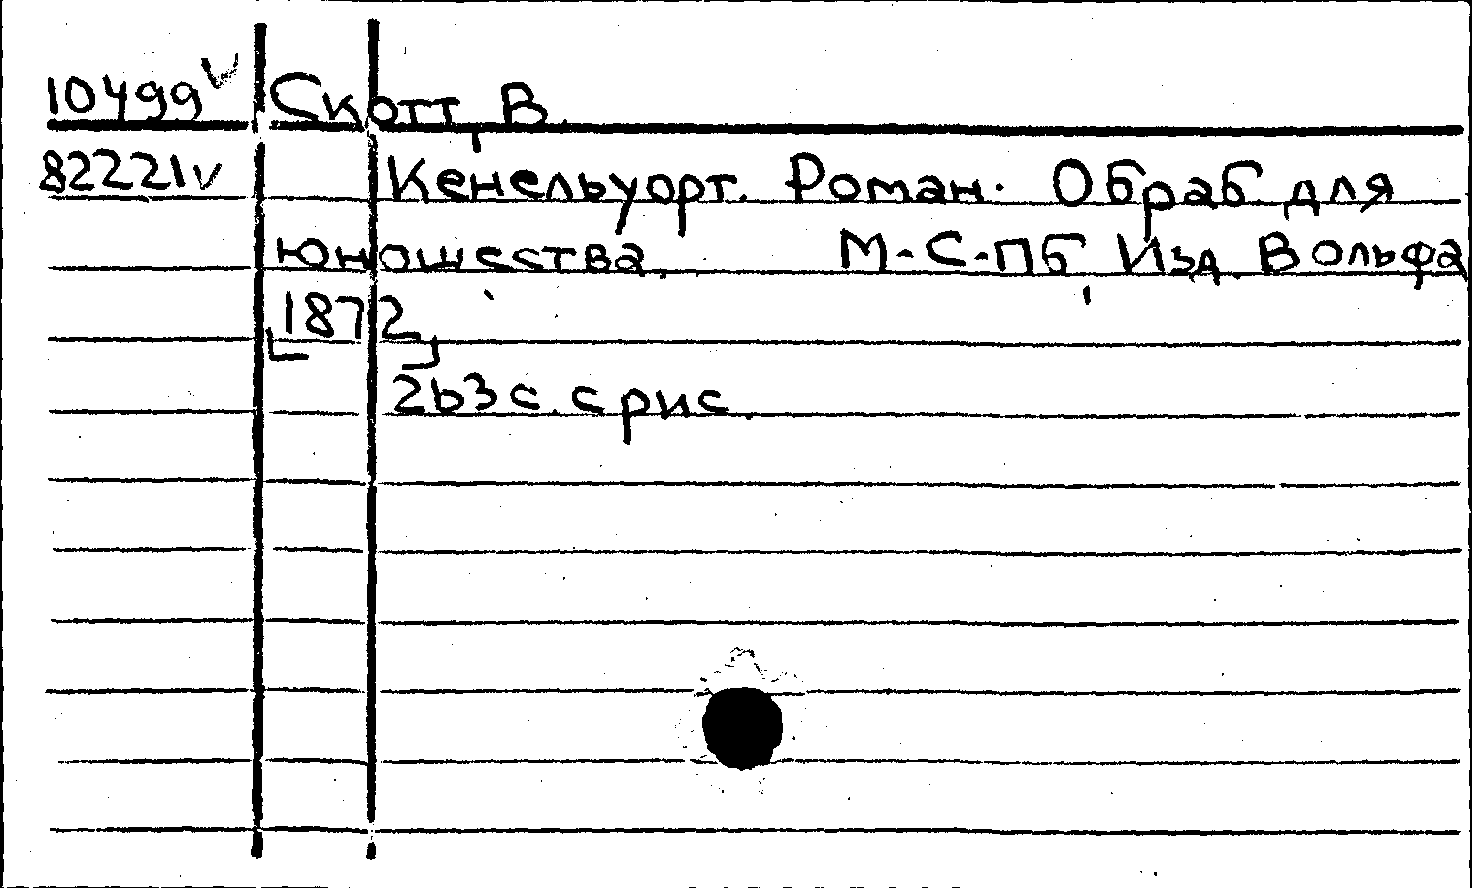 10499 v Скотт, В.
82221 v Кенельуорт. Роман. Обраб. для
юношества. М.-С.-Пб, Изд. Вольфа
[1872]
263 с. с рис.